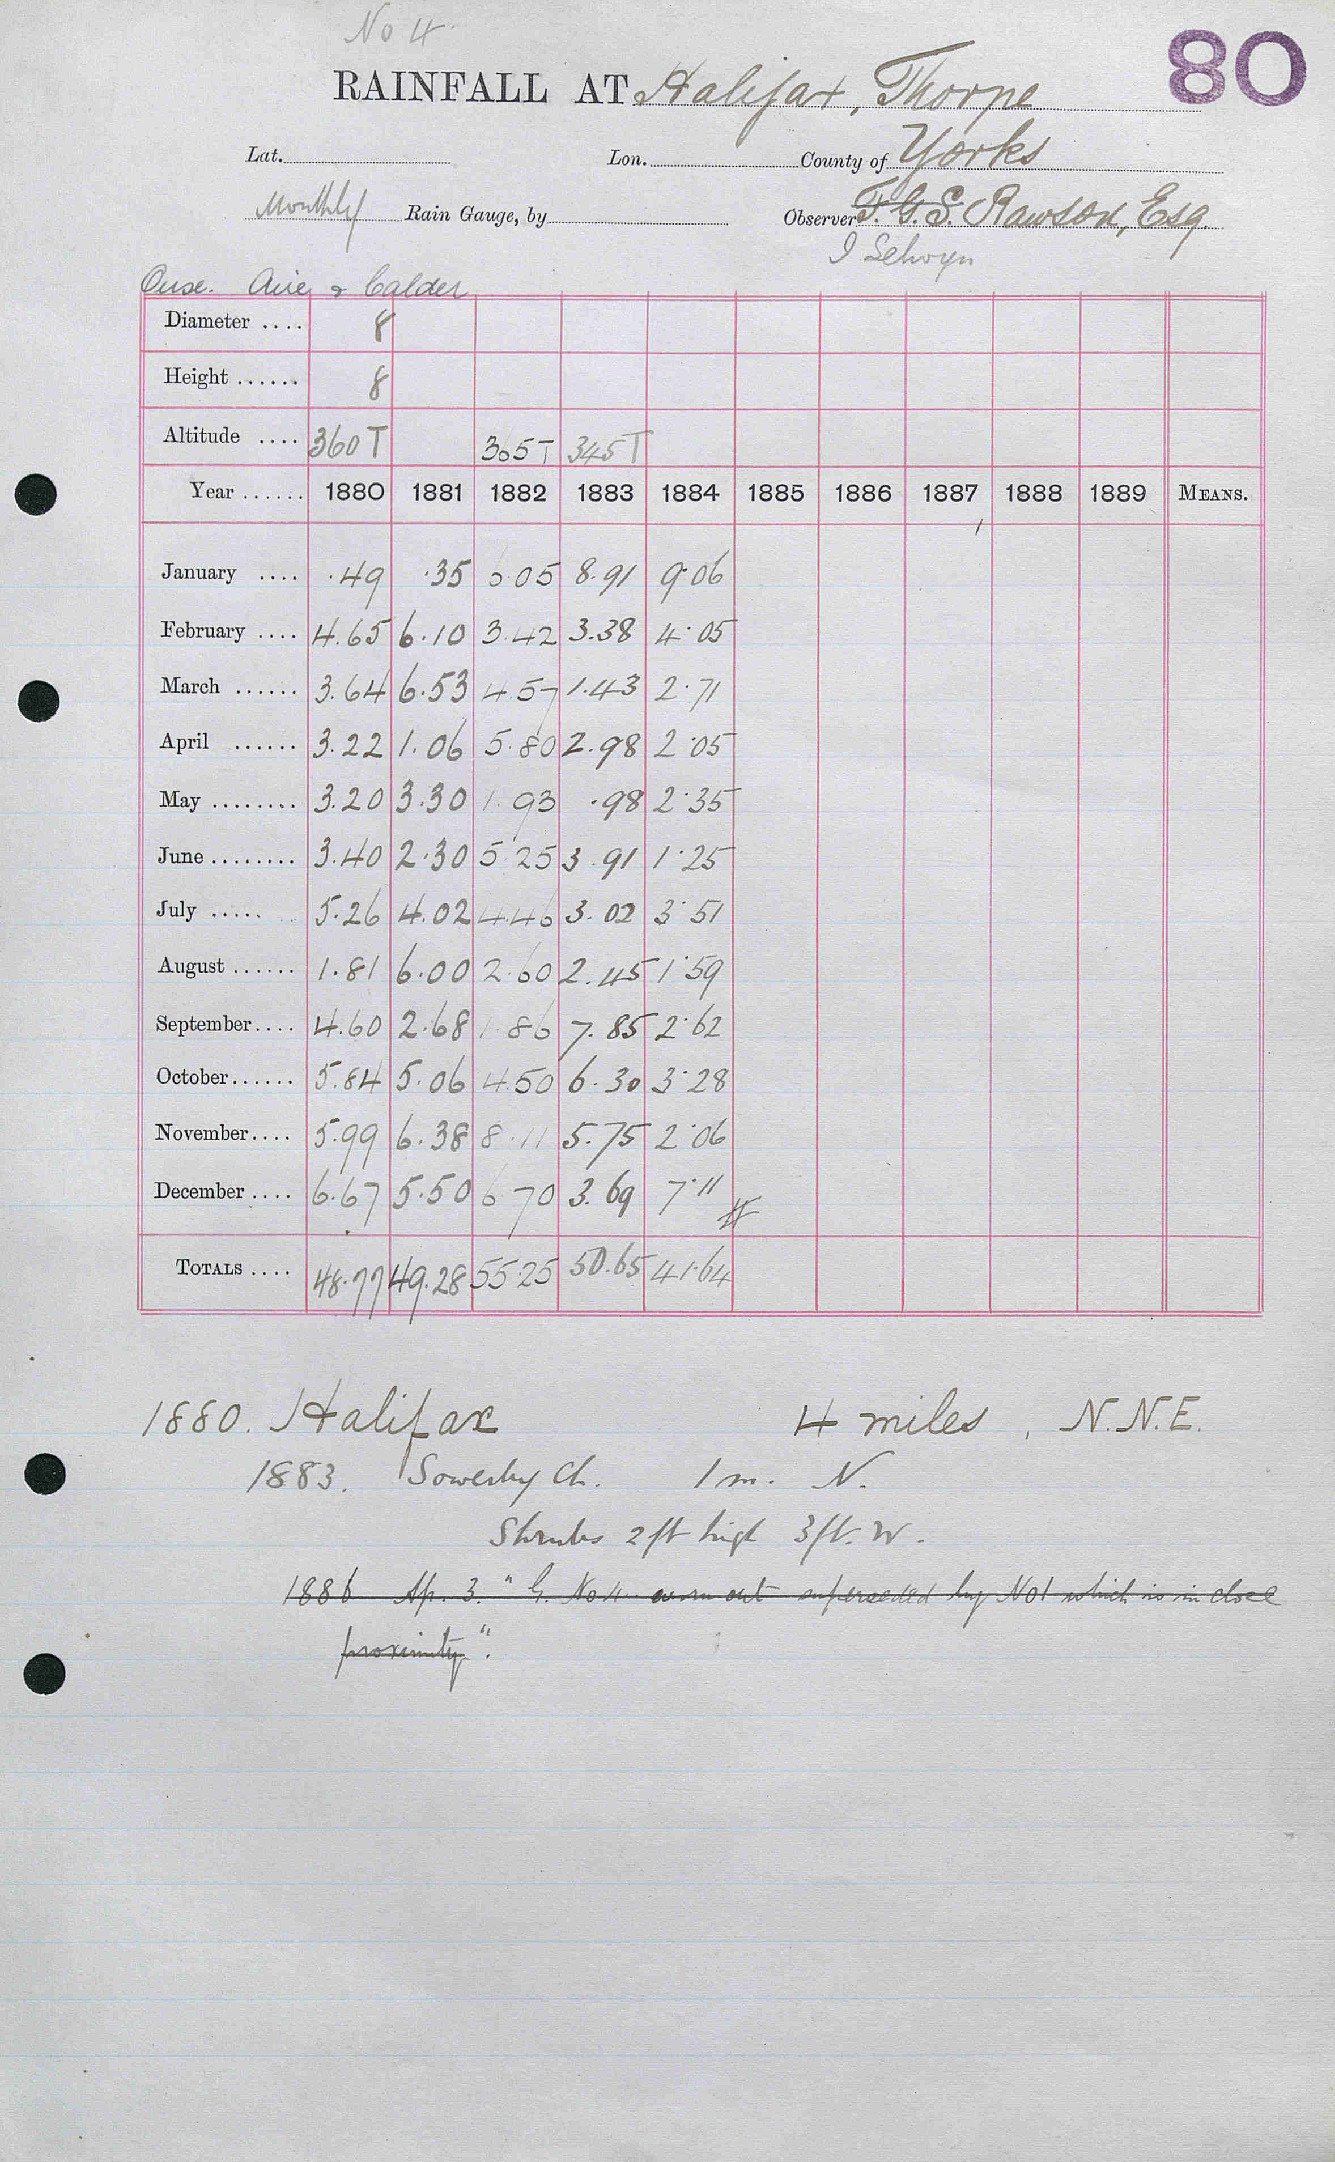 No 4
80
RAINFALL AT Halifax, Thorpe
Lat. Lon. County of Yorks
Monthly Rain Gauge, by Observer F. G. S. Rawson, Esq.
J Selwyn
Ouse. Aire & Calder
Diameter .... 8
Height ...... 8
Altitude .... 360 T 365 T 345 T
Year ...... 1880 1881 1882 1883 1884 1885 1886 1887 1888 1889 MEANS.
January .... .49 .35 6.05 8.91 9.06
February .... 4.65 6.10 3.42 3.38 4.05
March ...... 3.64 6.53 4.57 1.43 2.71
April ...... 3.22 1.06 5.80 2.98 2.05
May ........ 3.20 3.30 1.93 .98 2.35
June ........ 3.40 2.30 5.25 3.91 1.25
July ..... 5.26 4.02 4.46 3.02 3.51
August ...... 1.81 6.00 2.60 2.45 1.59
September .... 4.60 2.68 1.86 7.85 2.62
October ...... 5.84 5.06 4.50 6.30 3.28
November .... 5.99 6.38 8.11 5.75 2.06
December .... 6.67 5.50 6.70 3.69 7.11
TOTALS .... 48.77 49.28 55.25 50.65 41.64
1880. Halifax 4 miles, N.N.E.
1883. Sowerby Ch. 1 m. N.
Shrubs 2 ft high 3 ft. W.
1886 Ap. 3. "G. No 4 worn out superseded by No 1 which is in close
proximity".